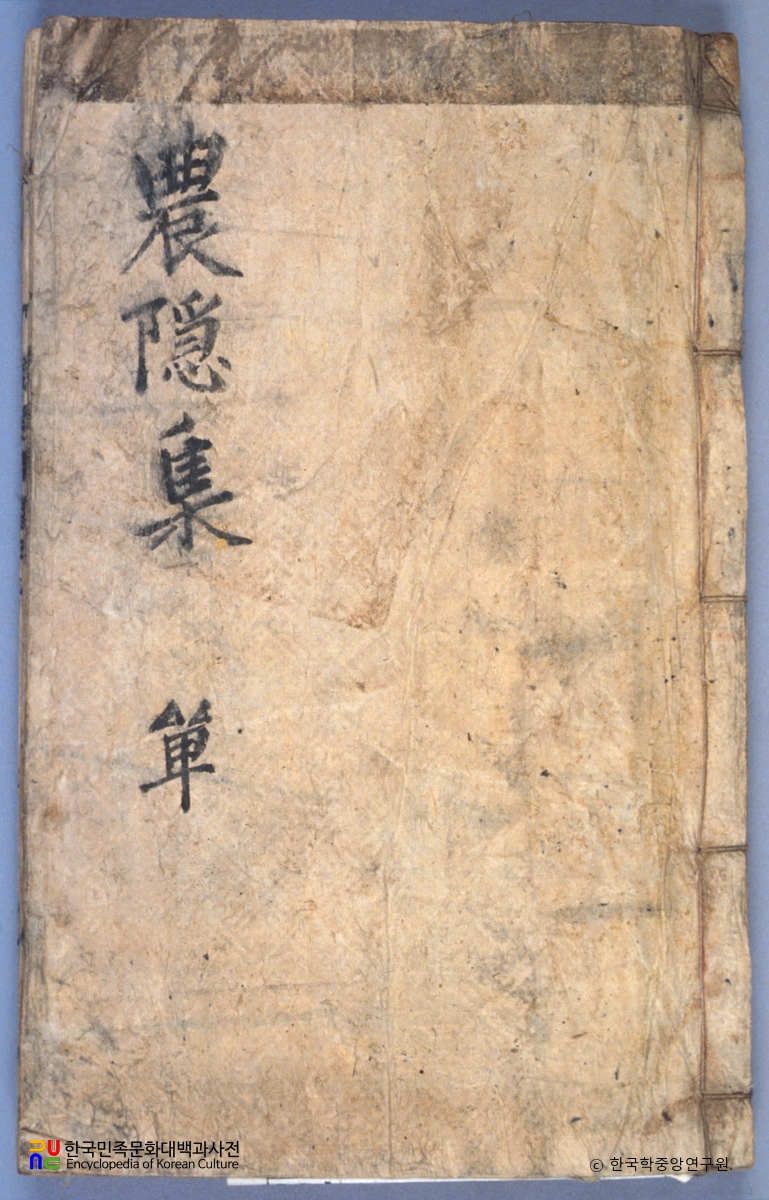 農隠集 單
한국민족문화대백과사전
Encyclopedia of Korean Culture
© 한국학중앙연구원